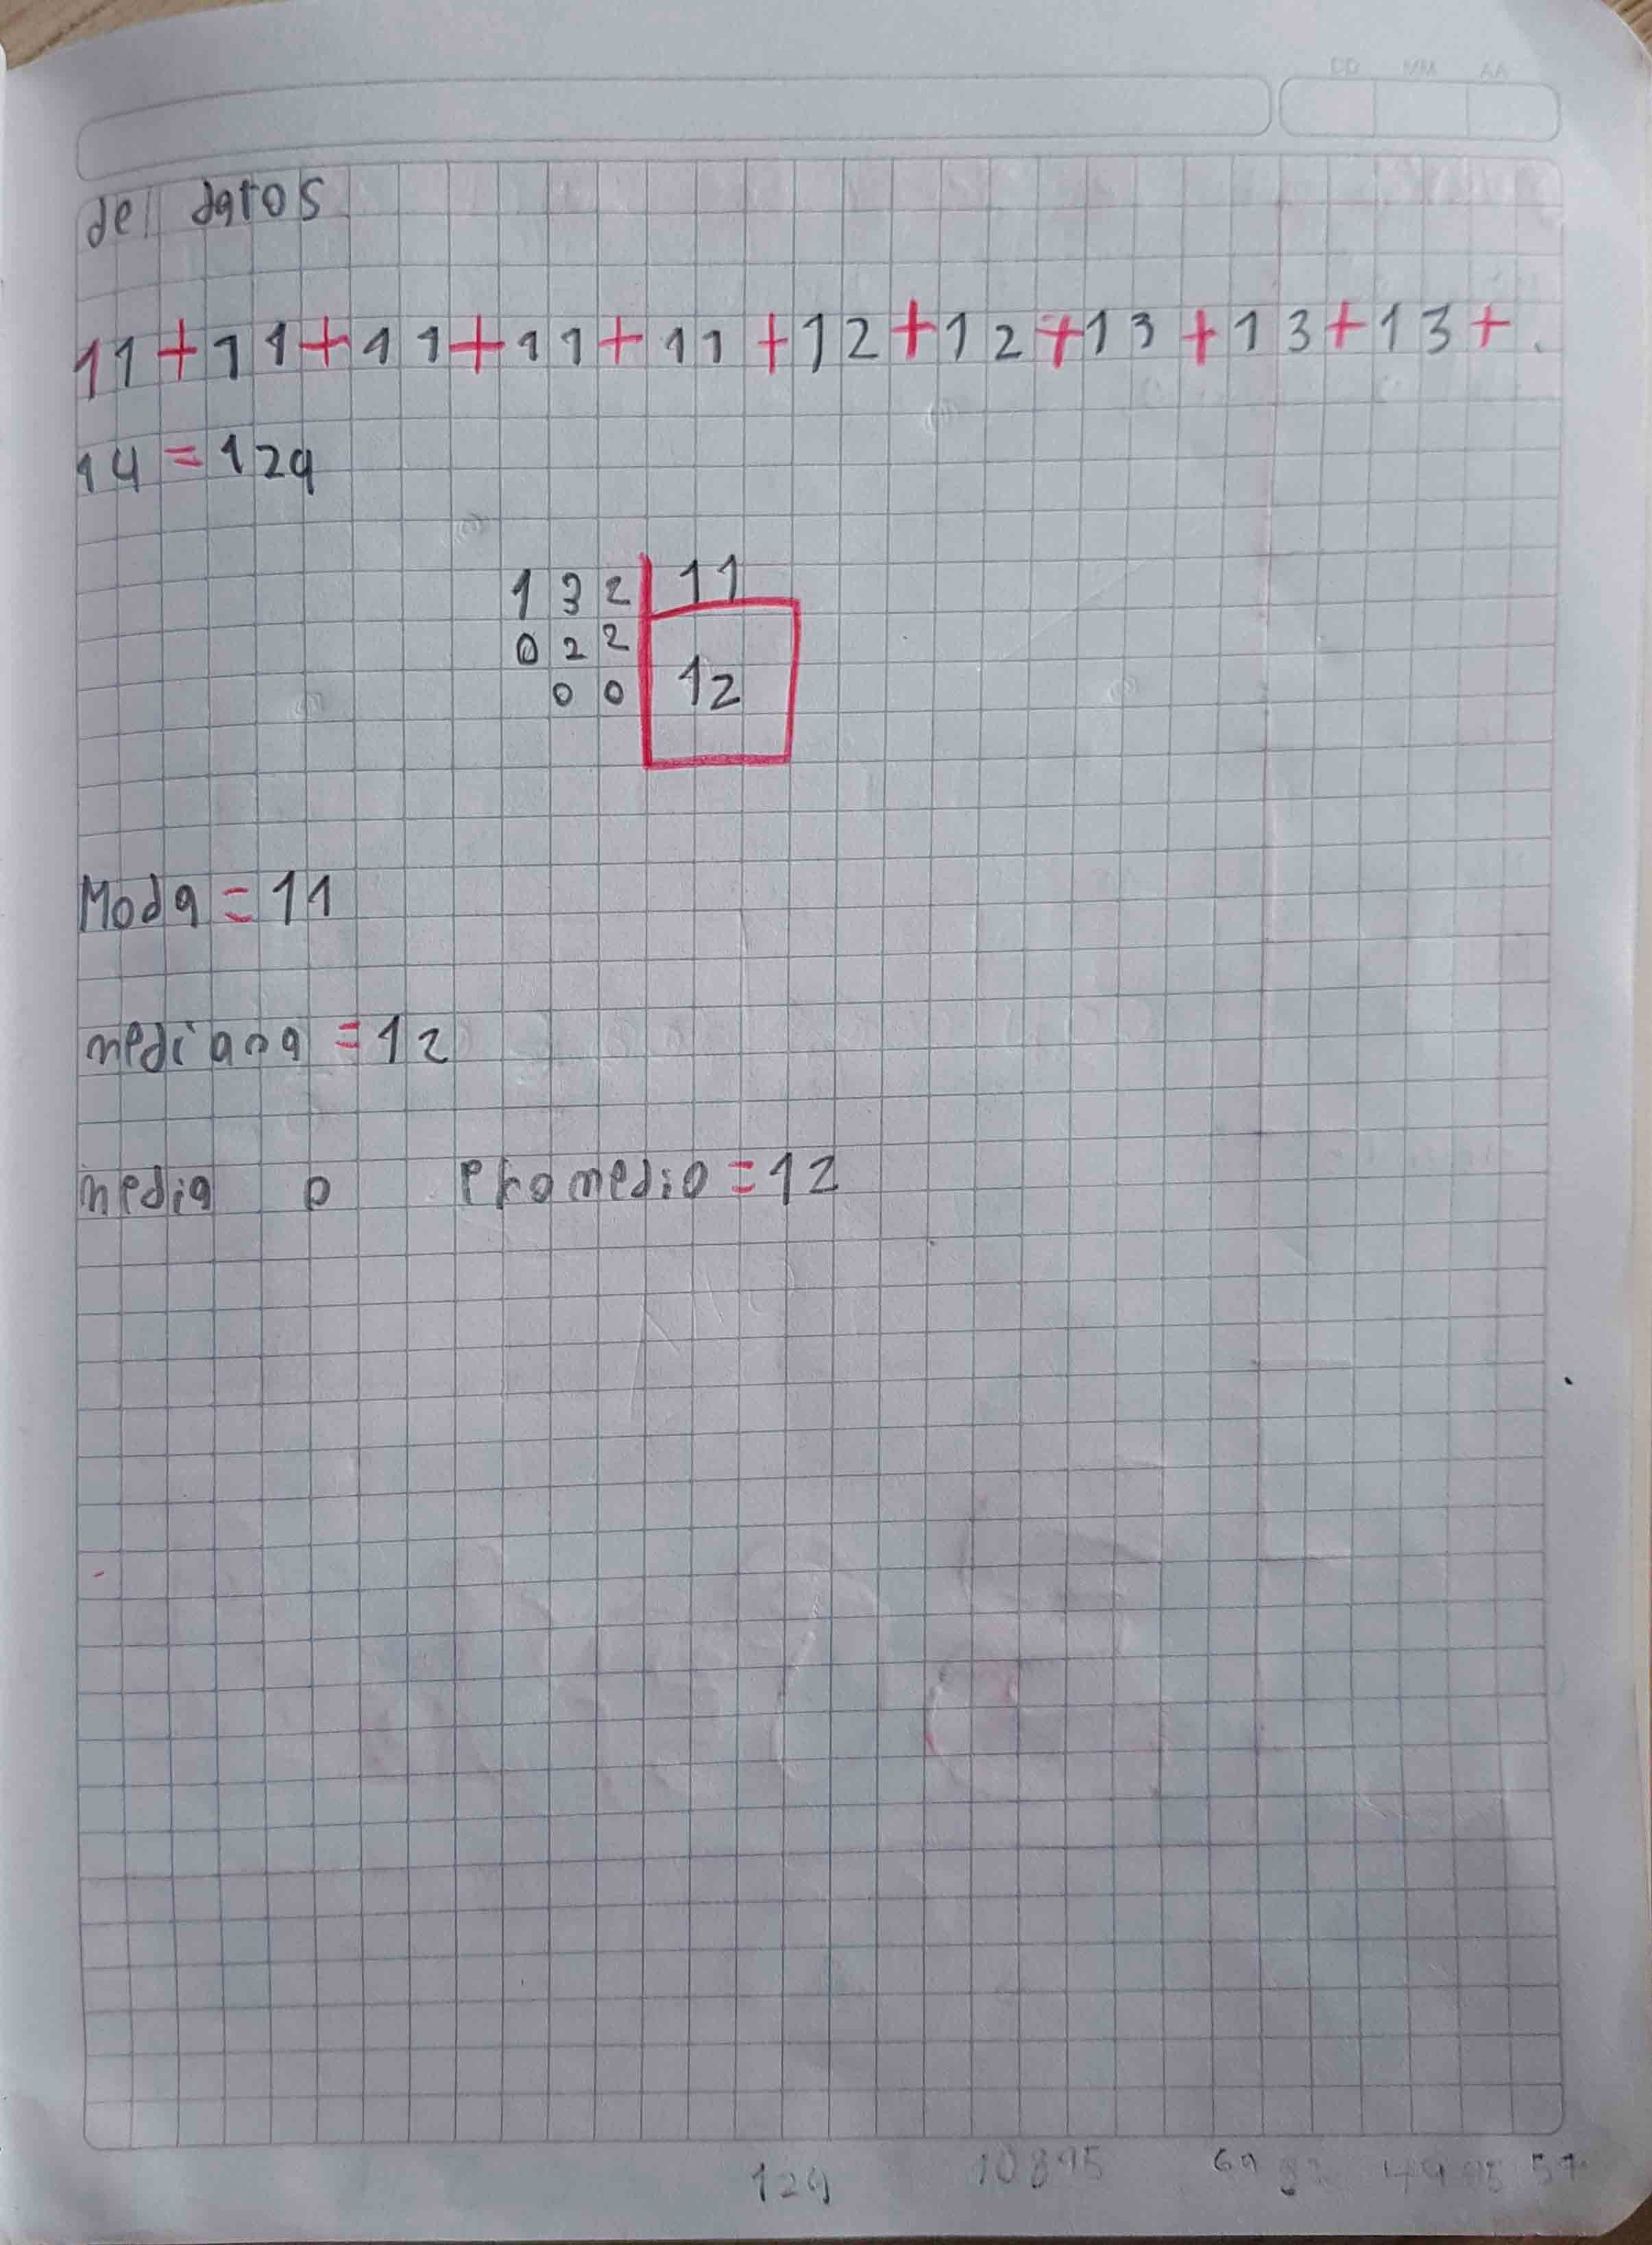 DD MM AA
del datos
11+11+11+11+11+12+12+13+13+13+.
14=129
132 11
022
00 12
Moda=11
mediana=12
media o promedio=12
129 10895